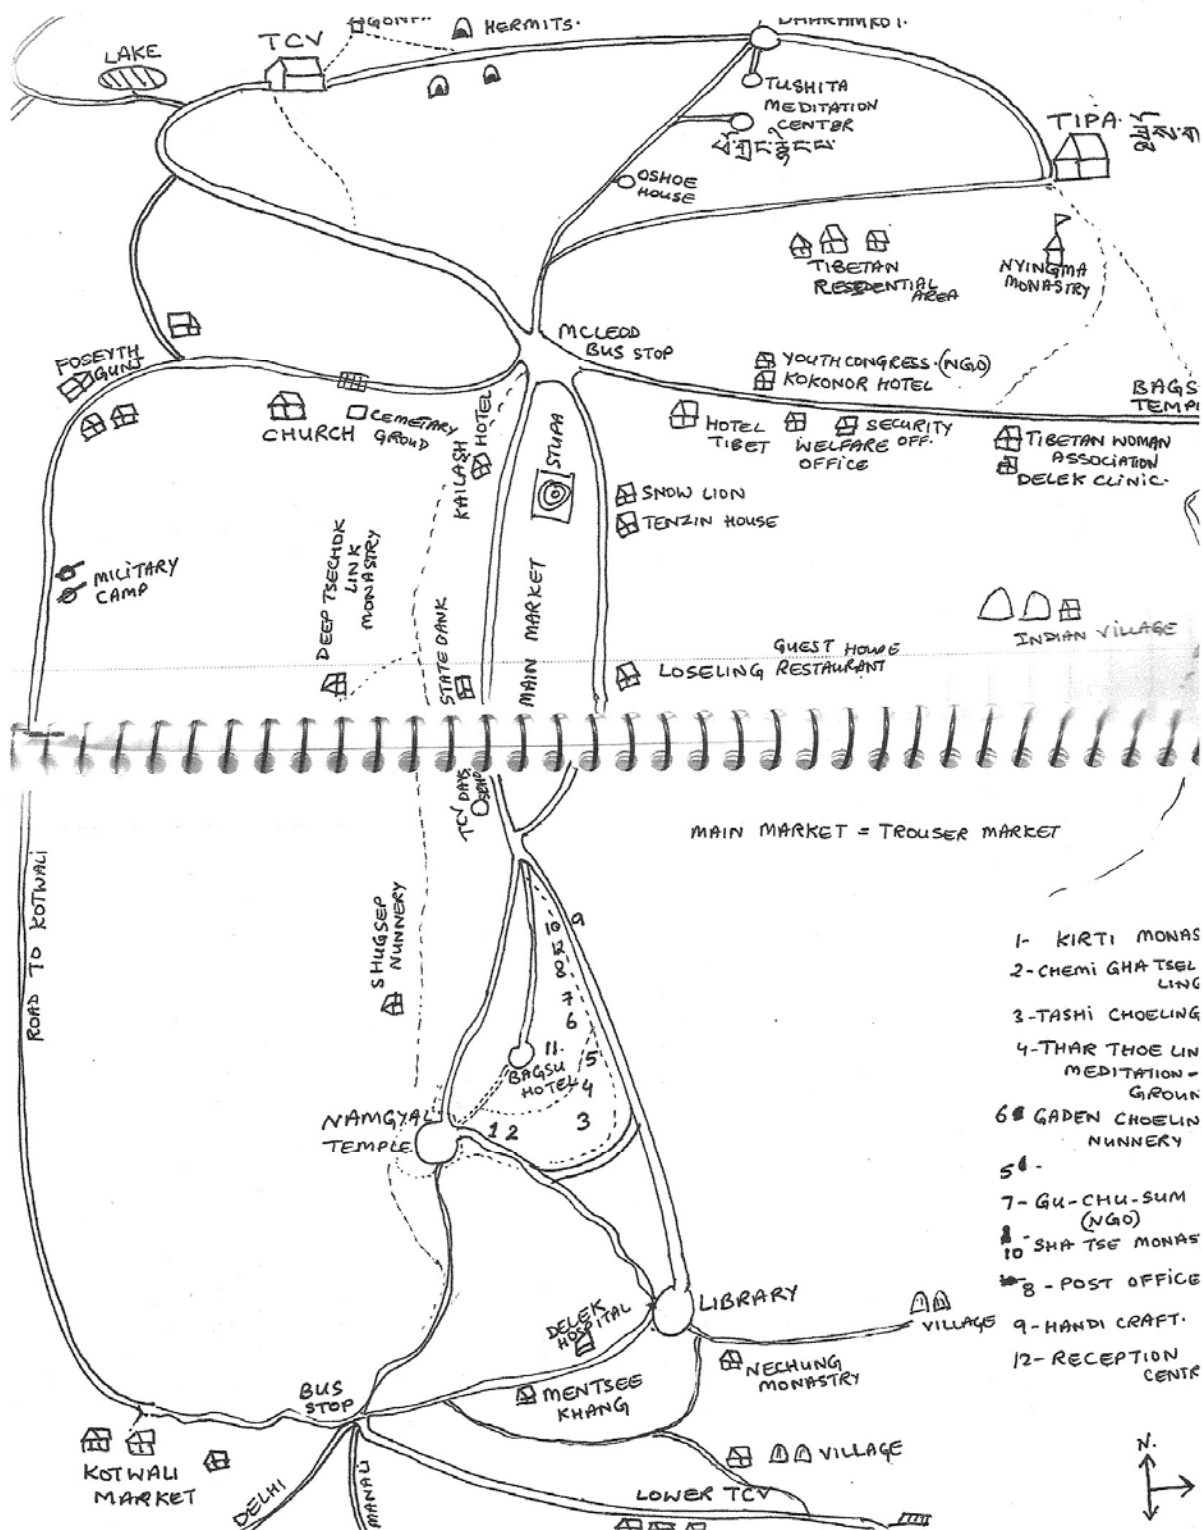 HERMITS.
LAKE
TCV
TUSHITA
MEDITATION
CENTER
TIPA.
OSHOE
HOUSE
TIBETAN
RESEDENTIAL
AREA
NYINGMA
MONASTRY
MCLEOD
BUS STOP
FOSEYTH
GUNJ
YOUTH CONGRESS. (NGO)
KOKONOR HOTEL
BAGS
TEMP
CHURCH
CEMETARY
GROUD
KAILASH
HOTEL
STUPA
HOTEL
TIBET
WELFARE
OFFICE
SECURITY
OFF.
TIBETAN WOMAN
ASSOCIATION
DELEK CLINIC.
SNOW LION
TENZIN HOUSE
MILITARY
CAMP
DEEP TSECHOK
LINK
MONASTRY
STATE DANK
MAIN MARKET
INDIAN VILLAGE
GUEST HOUSE
LOSELING RESTAURANT
TCV DAY
MAIN MARKET = TROUSER MARKET
ROAD TO KOTWALI
SHUGSEP
NUNNERY
9
10
12
8
7
6
11.
5
BAGSU
HOTEL
4
3
1 2
NAMGYAL
TEMPLE
1- KIRTI MONAS
2- CHEMI GHA TSEL
LING
3- TASHI CHOELING
4- THAR THOE LIN
MEDITATION -
GROUN
6 GADEN CHOELIN
NUNNERY
5 -
7- GU-CHU-SUM
(NGO)
10 SHA TSE MONAS
8 - POST OFFICE
9- HANDI CRAFT.
12- RECEPTION
CENTR
LIBRARY
VILLAGE
DELEK
HOSPITAL
NECHUNG
MONASTRY
MENTSEE
KHANG
BUS
STOP
KOTWALI
MARKET
DELHI
MANALI
VILLAGE
LOWER TCV
N.